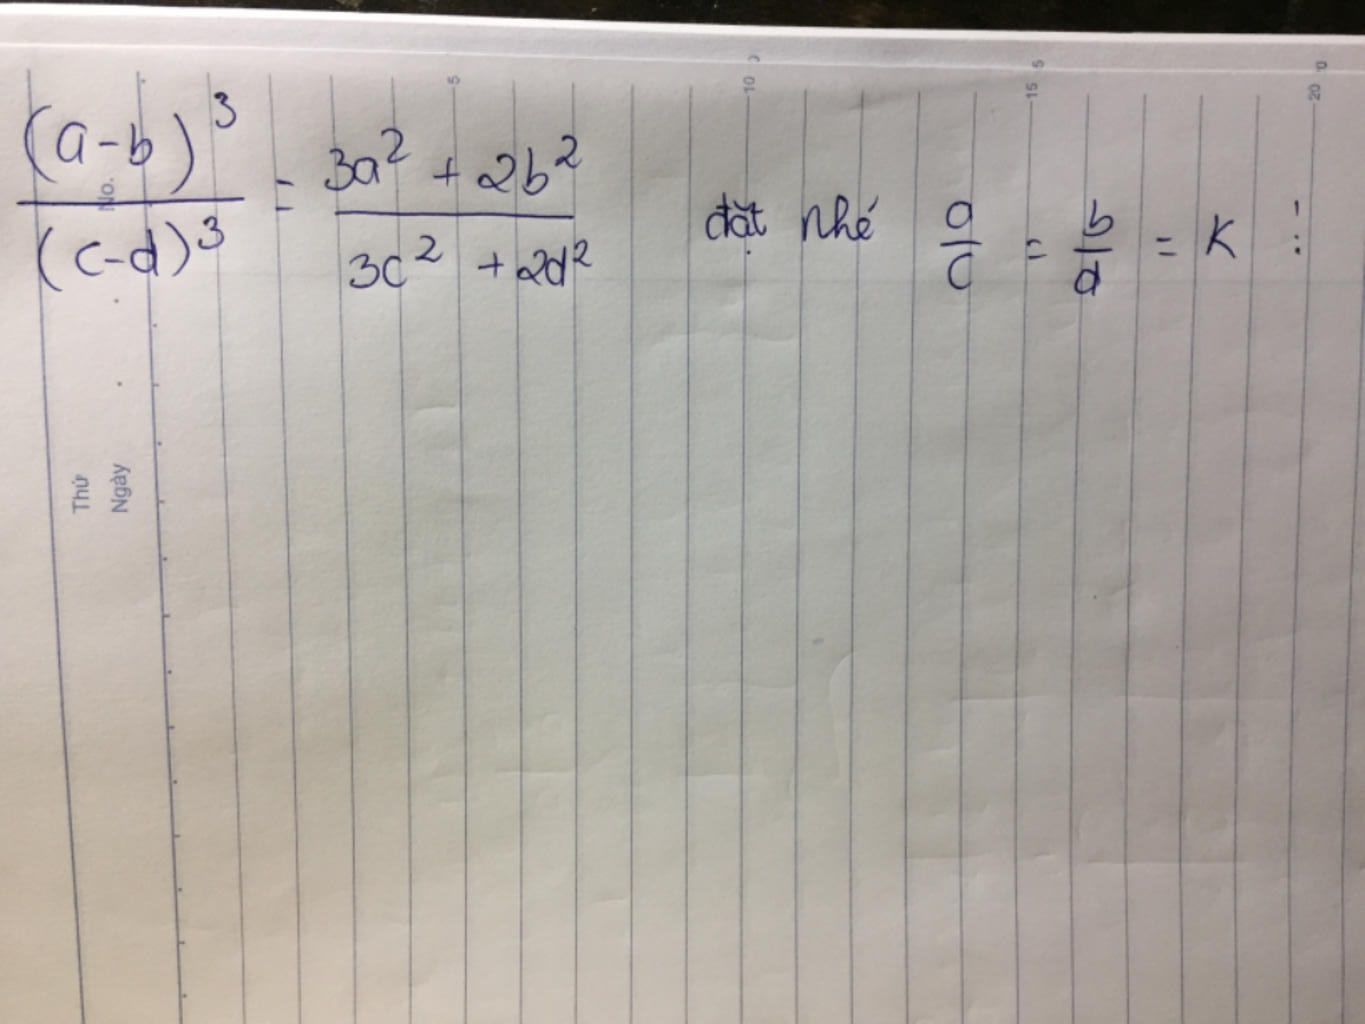 (a-b)³/(c-d)³ = (3a² + 2b²)/(3c² + 2d²) đặt nhé a/c = b/d = K
No.
Thứ
Ngày
5
10
15
20